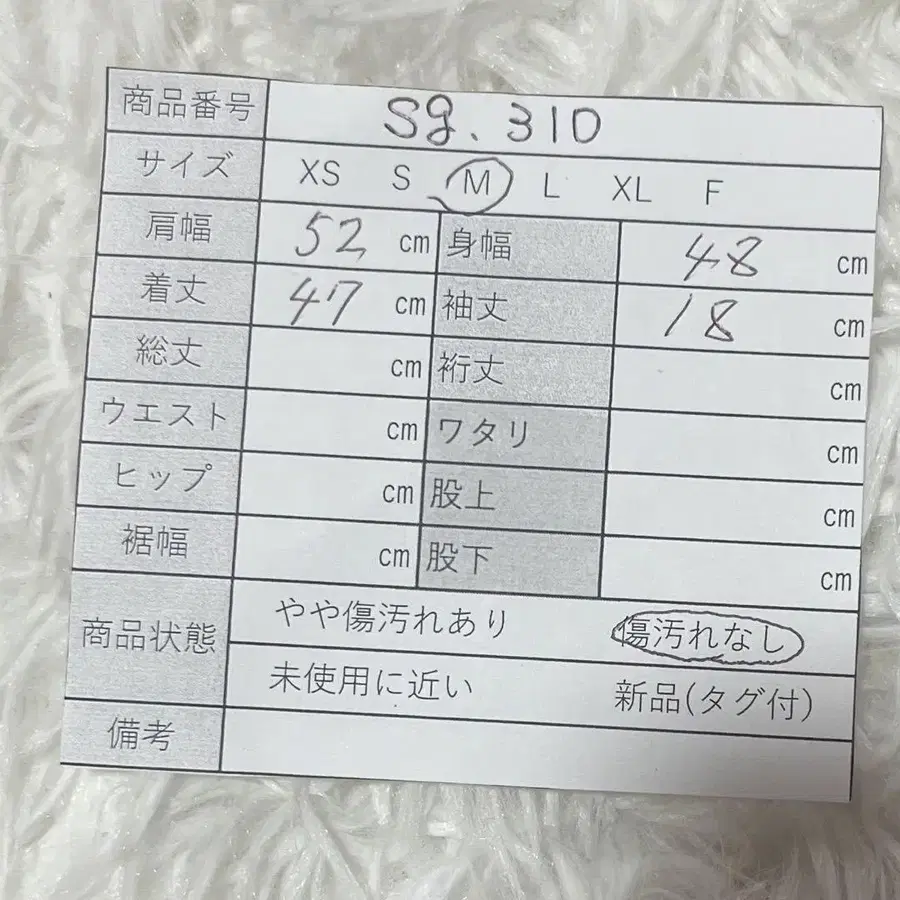 商品番号 Sg. 310
サイズ XS S M L XL F
肩幅 52 cm 身幅 48 cm
着丈 47 cm 袖丈 18 cm
総丈 cm 裄丈 cm
ウエスト cm ワタリ cm
ヒップ cm 股上 cm
裾幅 cm 股下 cm
商品状態 やや傷汚れあり 傷汚れなし
未使用に近い 新品(タグ付)
備考